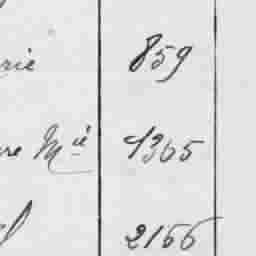 rie 859
re Mie 1365
2166